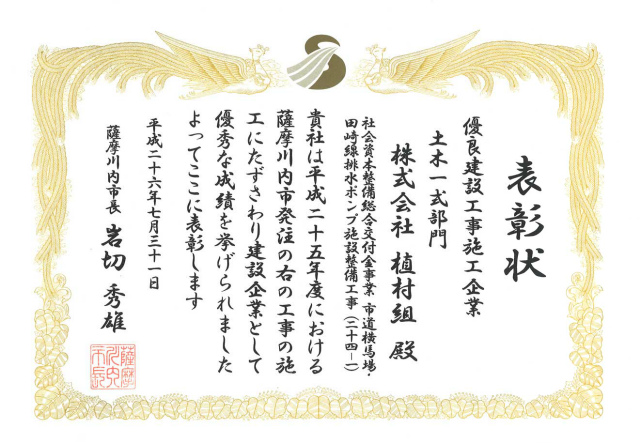 表彰状
優良建設工事施工企業
土木一式部門
株式会社 植村組 殿
社会資本整備総合交付金事業 市道横馬場・
田崎線排水ポンプ施設整備工事(二十四−一)
貴社は平成二十五年度における
薩摩川内市発注の右の工事の施
工にたずさわり建設企業として
優秀な成績を挙げられました
よってここに表彰します
平成二十六年七月三十一日
薩摩川内市長 岩切 秀雄
薩摩
川内
市長